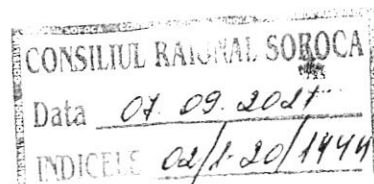 CONSILIUL RAIONAL SOROCA
Data 07.09.2021
INDICELE 02/1-20/1444